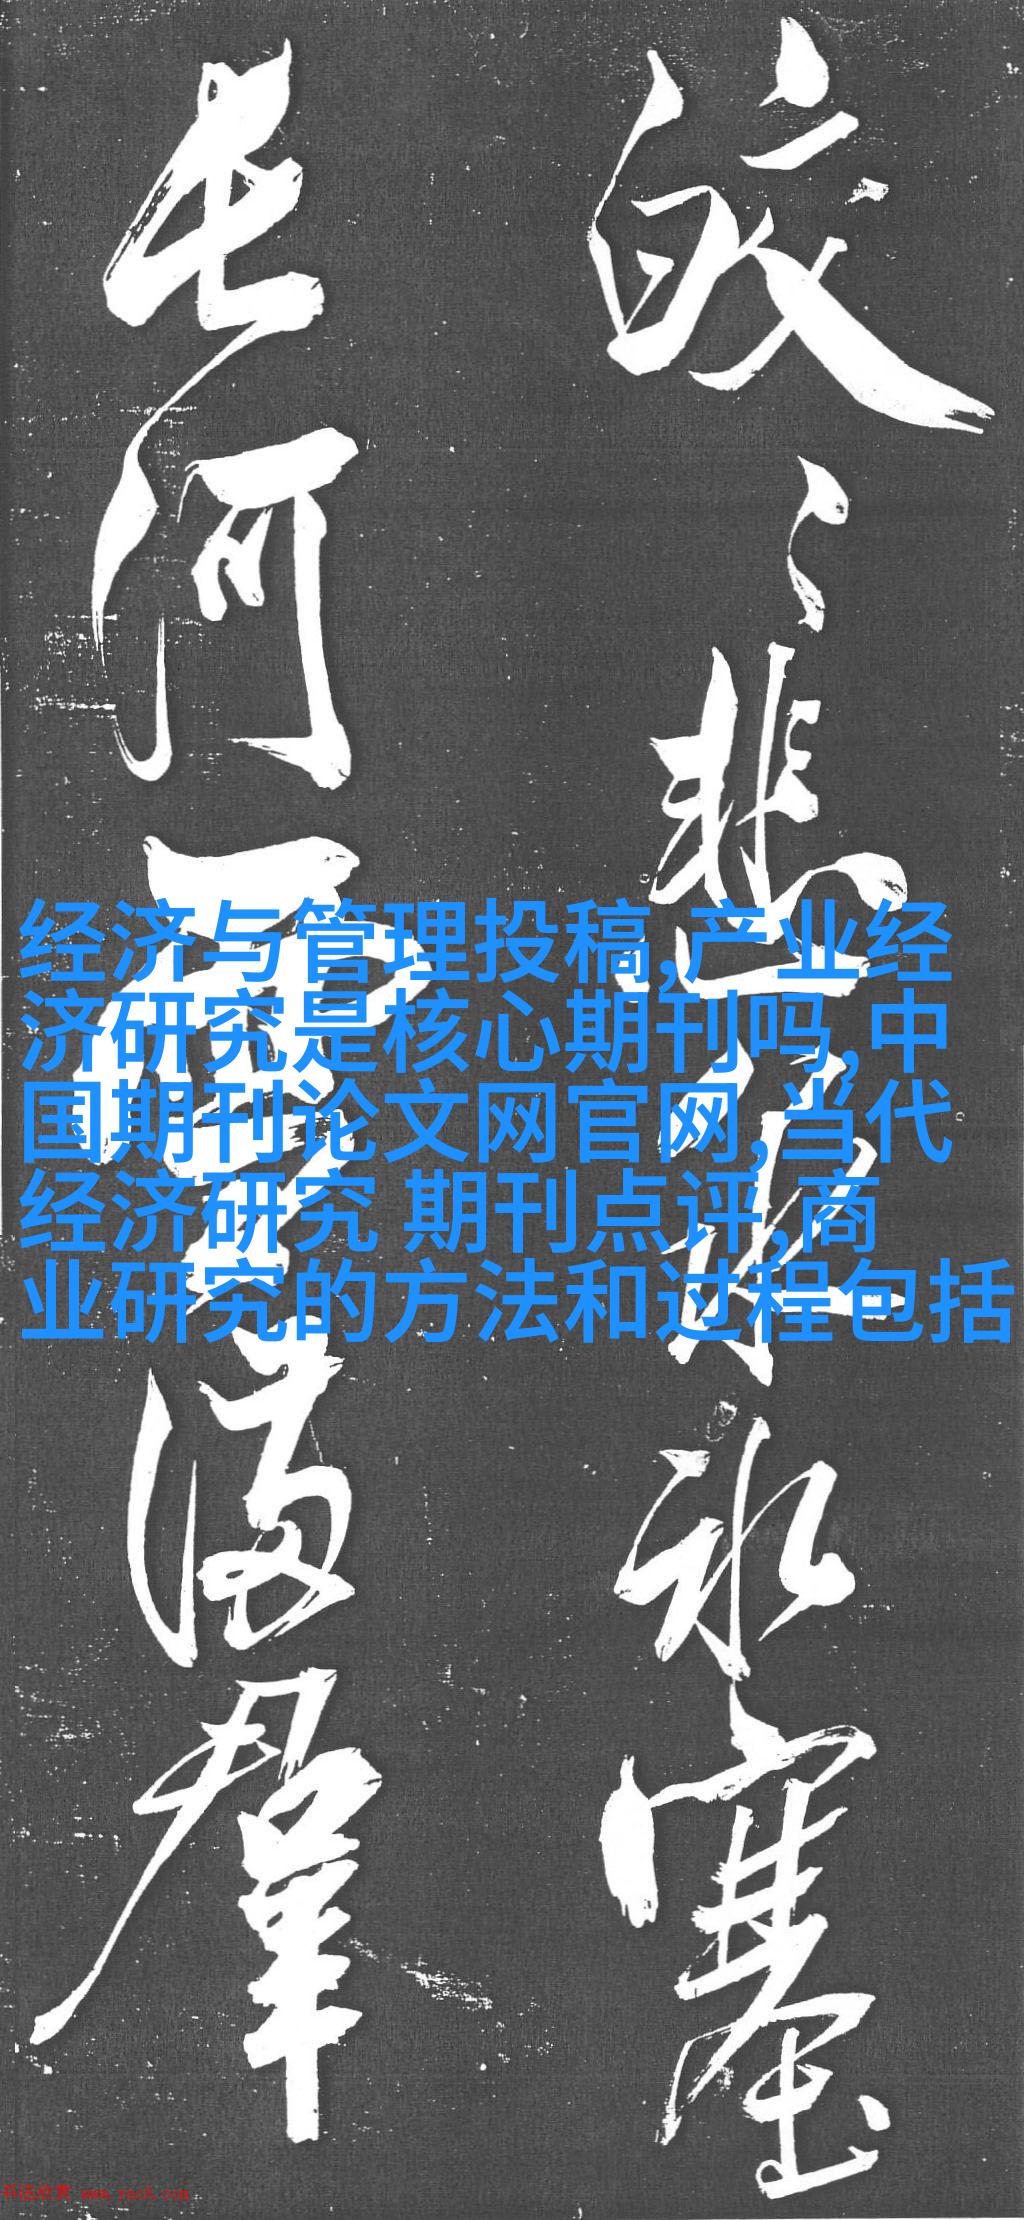 皎〻悲
冰塞
長河雪滿群
经济与管理投稿,产业经
济研究是核心期刊吗,中
国期刊论文网官网,当代
经济研究 期刊点评,商
业研究的方法和过程包括
书法欣赏 www.yac8.com